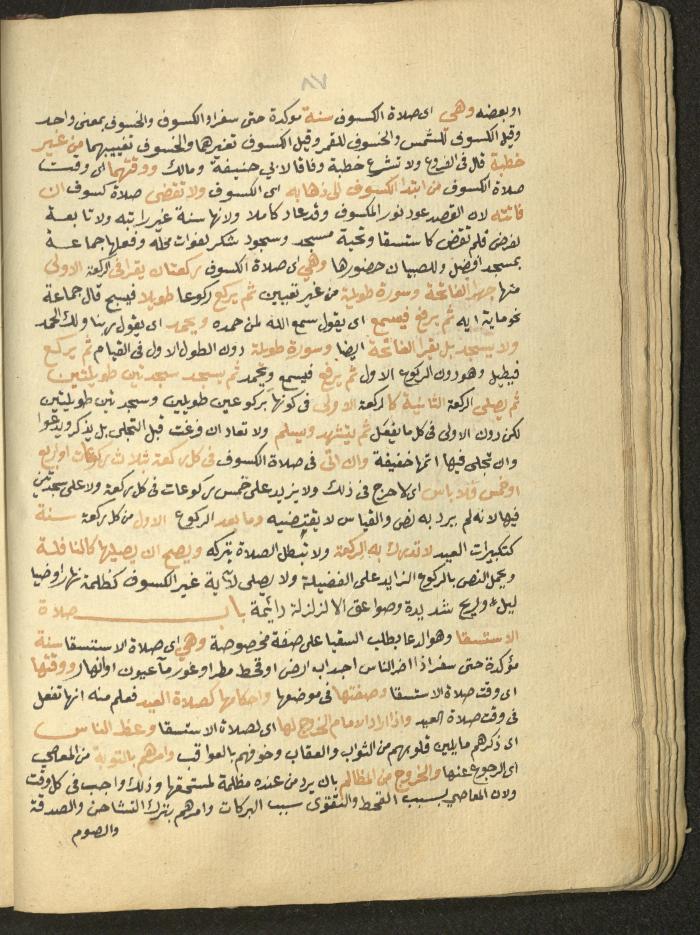 ٨٧
او بعضه وهي اى صلاة الكسوف سنة موكدة حتى سفرا والكسوف والخسوف بمعنى واحد
وقيل الكسوف للشمس والخسوف للقمر وقيل الكسوف تغيرها والخسوف تغييبهما من غير
خطبة قال في الفروع ولا تشرع خطبة وفاقا لابي حنيفة ومالك ووقتهما اى وقت
صلاة الكسوف من ابتدا الكسوف الى ذهابه اى الكسوف ولا تقضى صلاة كسوف ان
فاتته لان القصد عود نور المكسوف وقد عاد كاملا ولانها سنة غير راتبه ولا تابعة
لفرض فلم تقض كاستسقا وتحية مسجد وسجود شكر لفوات محله وفعلها جماعة
بمسجد افضل وللصبيان حضورها وهي اى صلاة الكسوف ركعتان يقرا في الركعة الاولى
منها جهرا الفاتحة وسورة طويلة من غير تعيين ثم يركع ركوعا طويلا فيسبح قال جماعة
نحو ماية ايه ثم يرفع فيسمع اى يقول سمع الله لمن حمده ويحمد اى يقول ربنا ولك الحمد
ولا يسجد بل يقرا الفاتحة ايضا وسورة طويلة دون الطول الاول في القيام ثم يركع
فيطيل وهو دون الركوع الاول ثم يرفع فيسمع ويحمد ثم يسجد سجدتين طويلتين
ثم يصلي الركعة الثانية كالركعة الاولى في كونها بركوعين طويلين وسجدتين طويلتين
لكن دون الاولى في كل ما يفعل ثم يتشهد ويسلم ولا تعاد ان فرغت قبل التجلي بل يذكر ويدعوا
وان تجلى فيها اتمها خفيفة وان اتى في صلاة الكسوف في كل ركعة بثلاث ركوعات او اربع
او خمس فلا باس اى لا حرج في ذلك ولا يزيد على خمس ركوعات في كل ركعة ولا على سجدتين
فيها لانه لم يرد به نص والقياس لا يقتضيه وما بعد الركوع الاول من كل ركعة سنة
كتكبيرات العيد لا تدرك به الركعة ولا تبطل الصلاة بتركه ويصح ان يصليها كالنافلة
ويحمل النص بالركوع الزايد على الفضيلة ولا يصلى لاية غير الكسوف كظلمة نهارا وضيا
ليلا وريح شديدة وصواعق الا لزلزلة دائمة باب صلاة
الاستسقا وهو الدعا بطلب السقيا على صفة مخصوصة وهي اى صلاة الاستسقا سنة
مؤكدة حتى سفرا اذا اضر الناس اجداب ارض او قحط مطر او غور ما عيون او انهار ووقتها
اى وقت صلاة الاستسقا وصفتها في موضعها واحكامها كصلاة العيد فعلم منه انها تفعل
في وقت صلاة العيد واذا اراد الامام الخروج لها اى لصلاة الاستسقا وعظ الناس
اى ذكرهم ما يلين قلوبهم من الثواب والعقاب وخوفهم بالعواقب وامرهم بالتوبة من المعاصي
اى الرجوع عنها والخروج من المظالم بان يرد من عنده مظلمة لمستحقها وذلك واجب في كل وقت
ولان المعاصي بسبب القحط والتقوى سبب البركات وامرهم بترك التشاحن والصدقة
والصوم